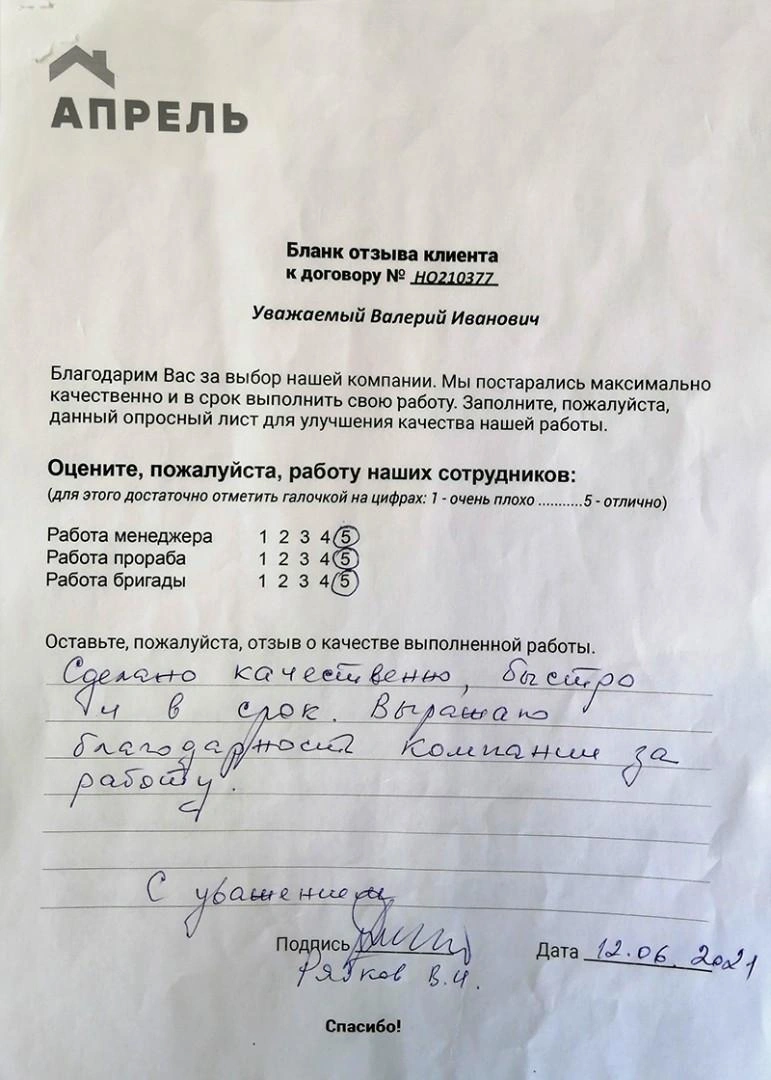 АПРЕЛЬ
Бланк отзыва клиента
к договору № НО210377
Уважаемый Валерий Иванович
Благодарим Вас за выбор нашей компании. Мы постарались максимально
качественно и в срок выполнить свою работу. Заполните, пожалуйста,
данный опросный лист для улучшения качества нашей работы.
Оцените, пожалуйста, работу наших сотрудников:
(для этого достаточно отметить галочкой на цифрах: 1 - очень плохо ...........5 - отлично)
Работа менеджера 1 2 3 4 5
Работа прораба 1 2 3 4 5
Работа бригады 1 2 3 4 5
Оставьте, пожалуйста, отзыв о качестве выполненной работы.
Сделано качественно, быстро
и в срок. Выражаю
благодарность компании за
работу.
С уважением
Подпись Дата 12.06.2021
В.И.
Спасибо!